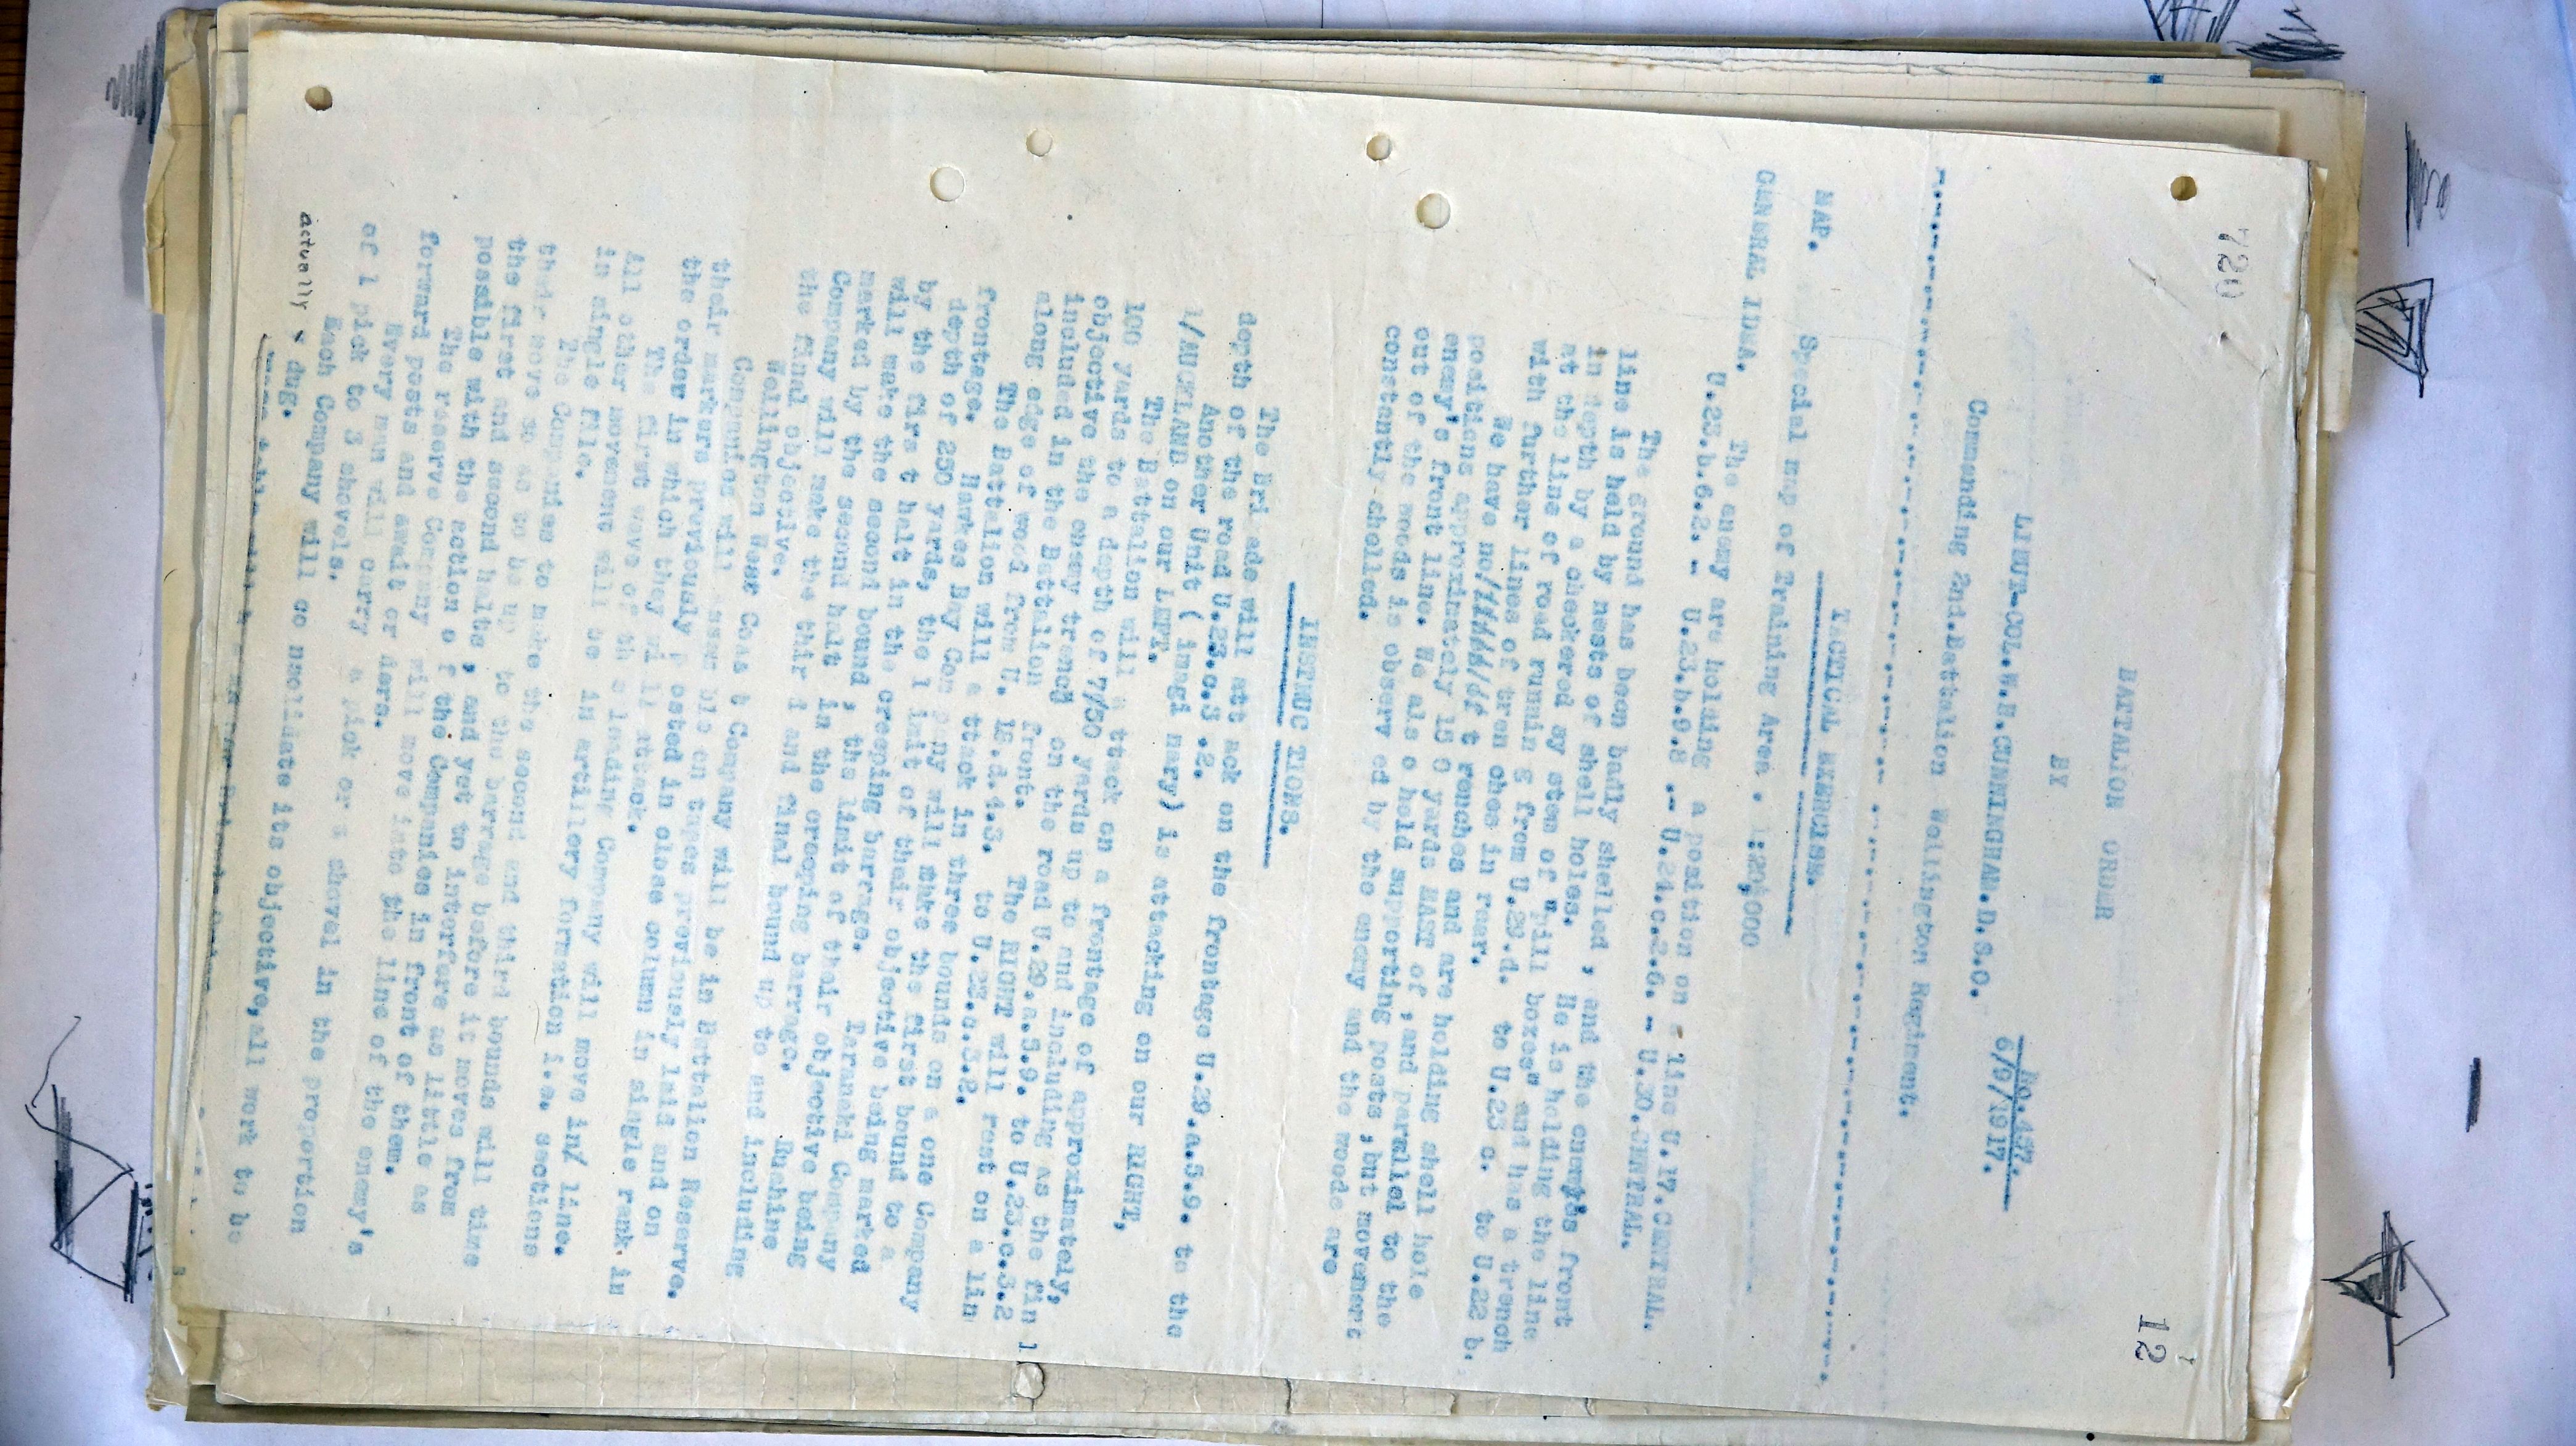 720
12
BATTALION ORDER
BY
LIEUT-COL.W.H.CUNNINGHAM.D.S.O.
Commanding 2nd.Battalion Wellington Regiment.
No.457.
6/9/1917.
TACTICAL EXERCISE.
MAP. Special map of Training Area . 1:20,000
GENERAL IDEA.
The enemy are holding a position on a line U.17.CENTRAL.
U.23.b.6.2. - U.23.b.9.8 .- U.24.c.2.6. - U.30.CENTRAL.
The ground has been badly shelled , and the enemy's front
line is held by nests of shell holes. He is holding the line
in depth by a checkered sy stem of "pill boxes" and has a trench
at the line of road runnin g from U.29.d. to U.23 c. to U.22 b.
with further lines of tren ches in rear.
We have no t renches and are holding shell hole
positions approximately 15 0 yards EAST of , and parallel to the
enemy's front line. We als o hold supporting posts , but movement
out of the woods is observ ed by the enemy and the woods are
constantly shelled.
INSTRUC TIONS.
The Bri ade will att ack on the frontage U.29.a.5.9. to the
North of the road U.23.c.3 .2.
Another Unit ( imagi nary) is attacking on our RIGHT,
1/AUCKLAND on our LEFT.
The Battalion will a ttack on a frontage of approximately,
100 yards to a depth of 7/50 yards up to and including as the fin l
objective the enemy trench on the road U.29.a.5.9. to U.23.c.3.2
included in the Battalion front. The RIGHT will rest on a lin
along edge of wood from U. to U.23.c.3.2.
The Battalion will a ttack in three bounds on a one Company
frontage. Hawkes Bay Com pany will make the first bound to a
depth of 250 yards, the l imit of their objective being marked
by the firs t halt in the creeping barrage. Taranaki Company
will make the second bound , the limit of their objective being
marked by the second halt in the creeping barrage. Ruahine
Company will make the thir d and final bound up to and including
the final objective.
Wellington West Coas t Company will be in Battalion Reserve.
Companies will assem ble on tapes previously laid and on
their markers previously p osted in close column in single rank in
the order in which they wi ll attack.
The first wave of th e leading Company will move in line.
All other movement will be in artillery formation i.e. sections
in single file.
The Companies to make the second and third bounds will time
their move so as to be up to the barrage before it moves from
the first and second halts , and yet to interfere as little as
possible with the action o f the Companies in front of them.
The reserve Company will move into the line of the enemy's
forward posts and await or ders.
Every man will carry a pick or a shovel in the proportion
of 1 pick to 3 shovels.
Each Company will co nsolidate its objective, all work to be
actually dug.